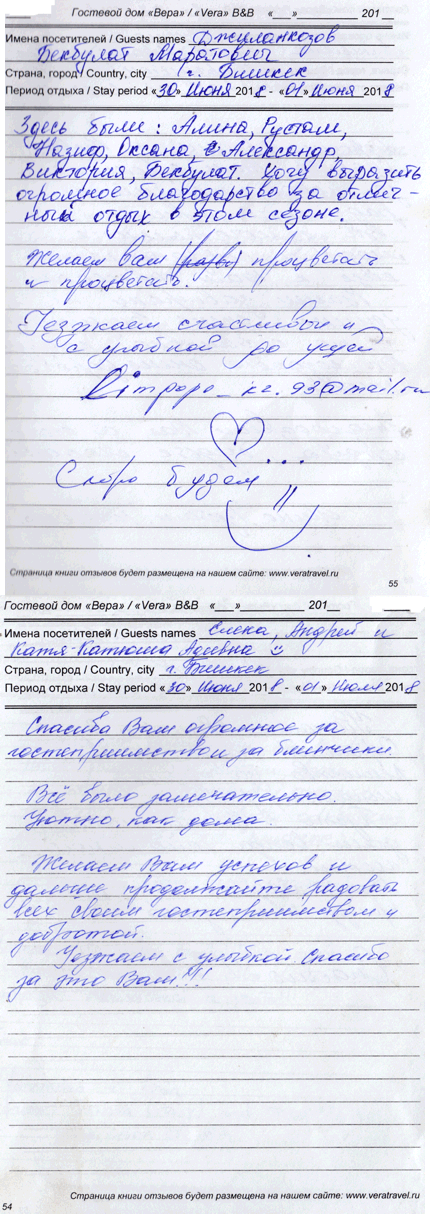 Гостевой дом «Вера» / «Vera» B&B «___»__________ 201__
Имена посетителей / Guests names Джиланкозов
Бекбулат Маратович
Страна, город / Country, city г. Бишкек
Период отдыха / Stay period «30» Июня 2018 - «01» Июня 2018
Здесь были: Алина, Рустам,
Назир, Оксана, Александр
Виктория, Бекбулат. Хочу выразить
огромное благодарство за отлич-
ный отдых в этом сезоне.
Желаем вам процветать
и процветать.
Уезжаем счастливые и
с улыбкой до ушей
kg.93@mail.ru
Скоро будем ...
Страница книги отзывов будет размещена на нашем сайте: www.veratravel.ru
55
Гостевой дом «Вера» / «Vera» B&B «___»__________ 201__
Имена посетителей / Guests names Елена, Андрей и
Катя-Катюша
Страна, город / Country, city г. Бишкек
Период отдыха / Stay period «30» Июня 2018 - «01» Июля 2018
Спасибо Вам огромное за
гостеприимство и за блинчики.
Всё было замечательно.
Уютно, как дома.
Желаем Вам успехов и
дальше продолжайте радовать
всех своим гостеприимством и
добротой.
Уезжаем с улыбкой. Спасибо
за это Вам!!!
Страница книги отзывов будет размещена на нашем сайте: www.veratravel.ru
54